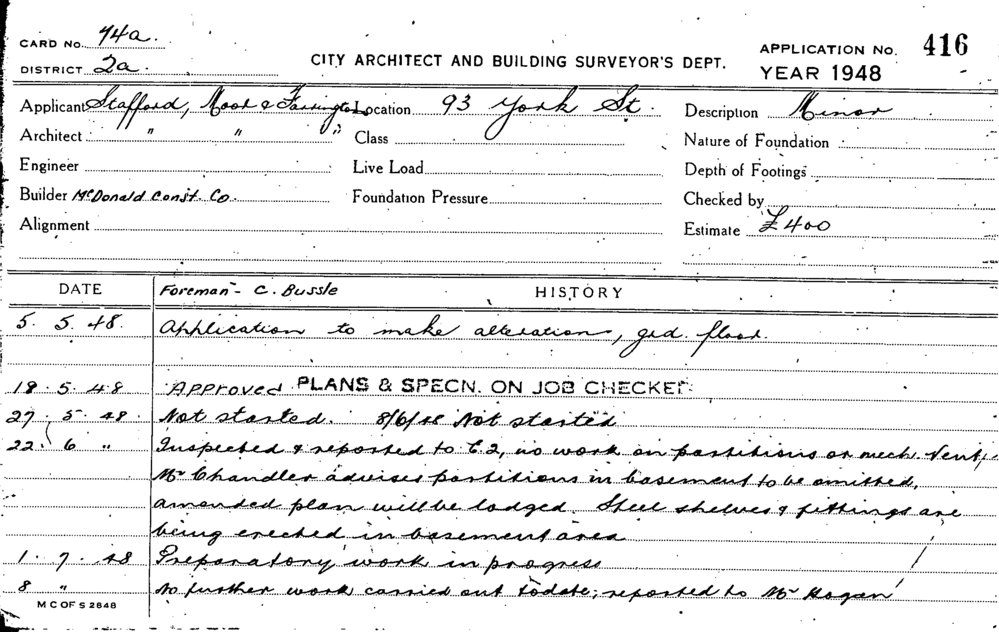 CARD No. 74a.
DISTRICT 2a.
CITY ARCHITECT AND BUILDING SURVEYOR'S DEPT.
APPLICATION No. 416
YEAR 1948
Applicant Stafford, Moor & Farrington Location 93 York St. Description Minor
Architect " " " Class Nature of Foundation
Engineer Live Load Depth of Footings
Builder McDonald Const. Co. Foundation Pressure Checked by
Alignment Estimate £400
DATE Foreman - C. Bussle HISTORY
5. 5. 48. Application to make alterations, grd. floor.
18. 5. 48 Approved PLANS & SPECN. ON JOB CHECKED
27. 5. 48. Not started. 8/6/48 Not started
22. 6 " Inspected & reported to C.2, no work on partitions or mech. Vent,
Mr Chandler advises partitions in basement to be omitted,
amended plan will be lodged. Steel shelves & fittings are
being erected in basement area
1. 7. 48 Preparatory work in progress
8 " No further work carried out todate; reported to Mr Hogan
M C OF S 2848